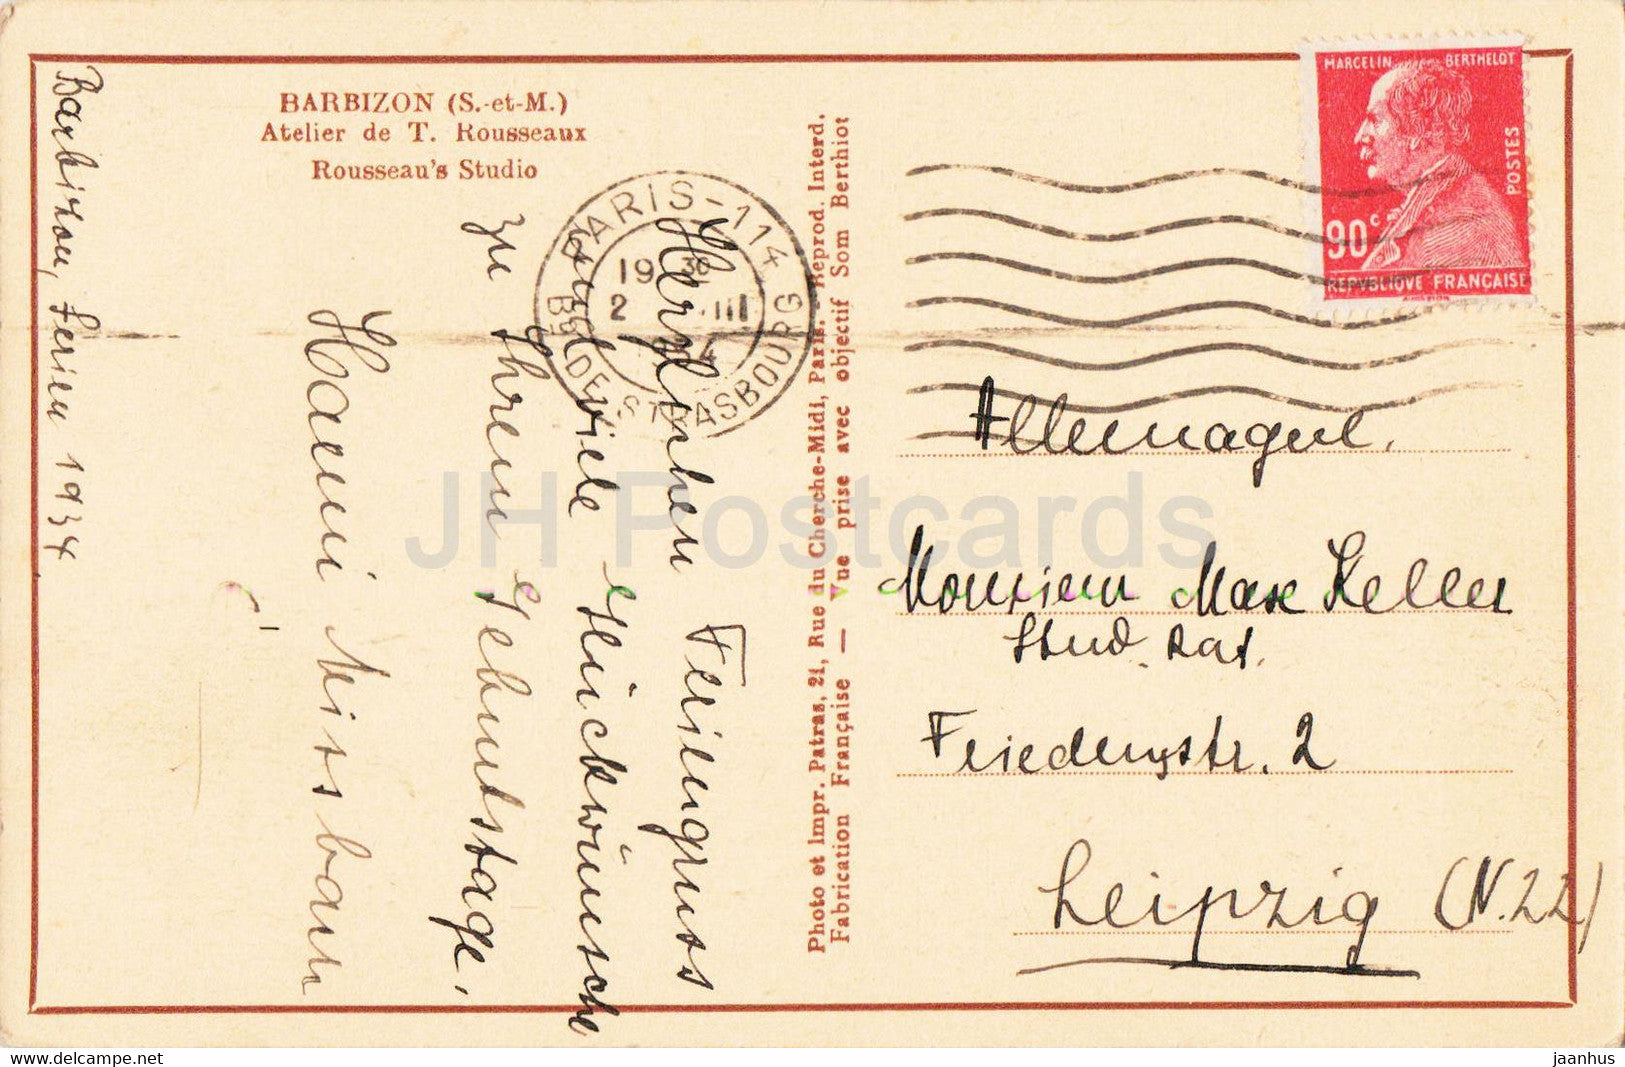 BARBIZON (S.-et-M.)
Atelier de T. Rousseaux
Rousseau's Studio
Barbizon, Ferien 1934.
Herzlichen Feriengruss
und viele Glückwünsche
zu Ihrem Geburtstage,
Photo et Impr. Patras, 21, Rue du Cherche-Midi, Paris. Reprod. Interd.
Fabrication Française — Vue prise avec objectif Som Berthiot
PARIS-114
19 30
2 III
34
Bd DE STRASBOURG
MARCELIN BERTHELOT
POSTES
90c
REPUBLIQUE FRANÇAISE
Allemagne.
Monsieur Max Keller
Stud. Rat.
Friedenstr. 2
Leipzig (N. 22)
JH Postcards
https://www.ebay.com/str/jhpostcards
jaanhus